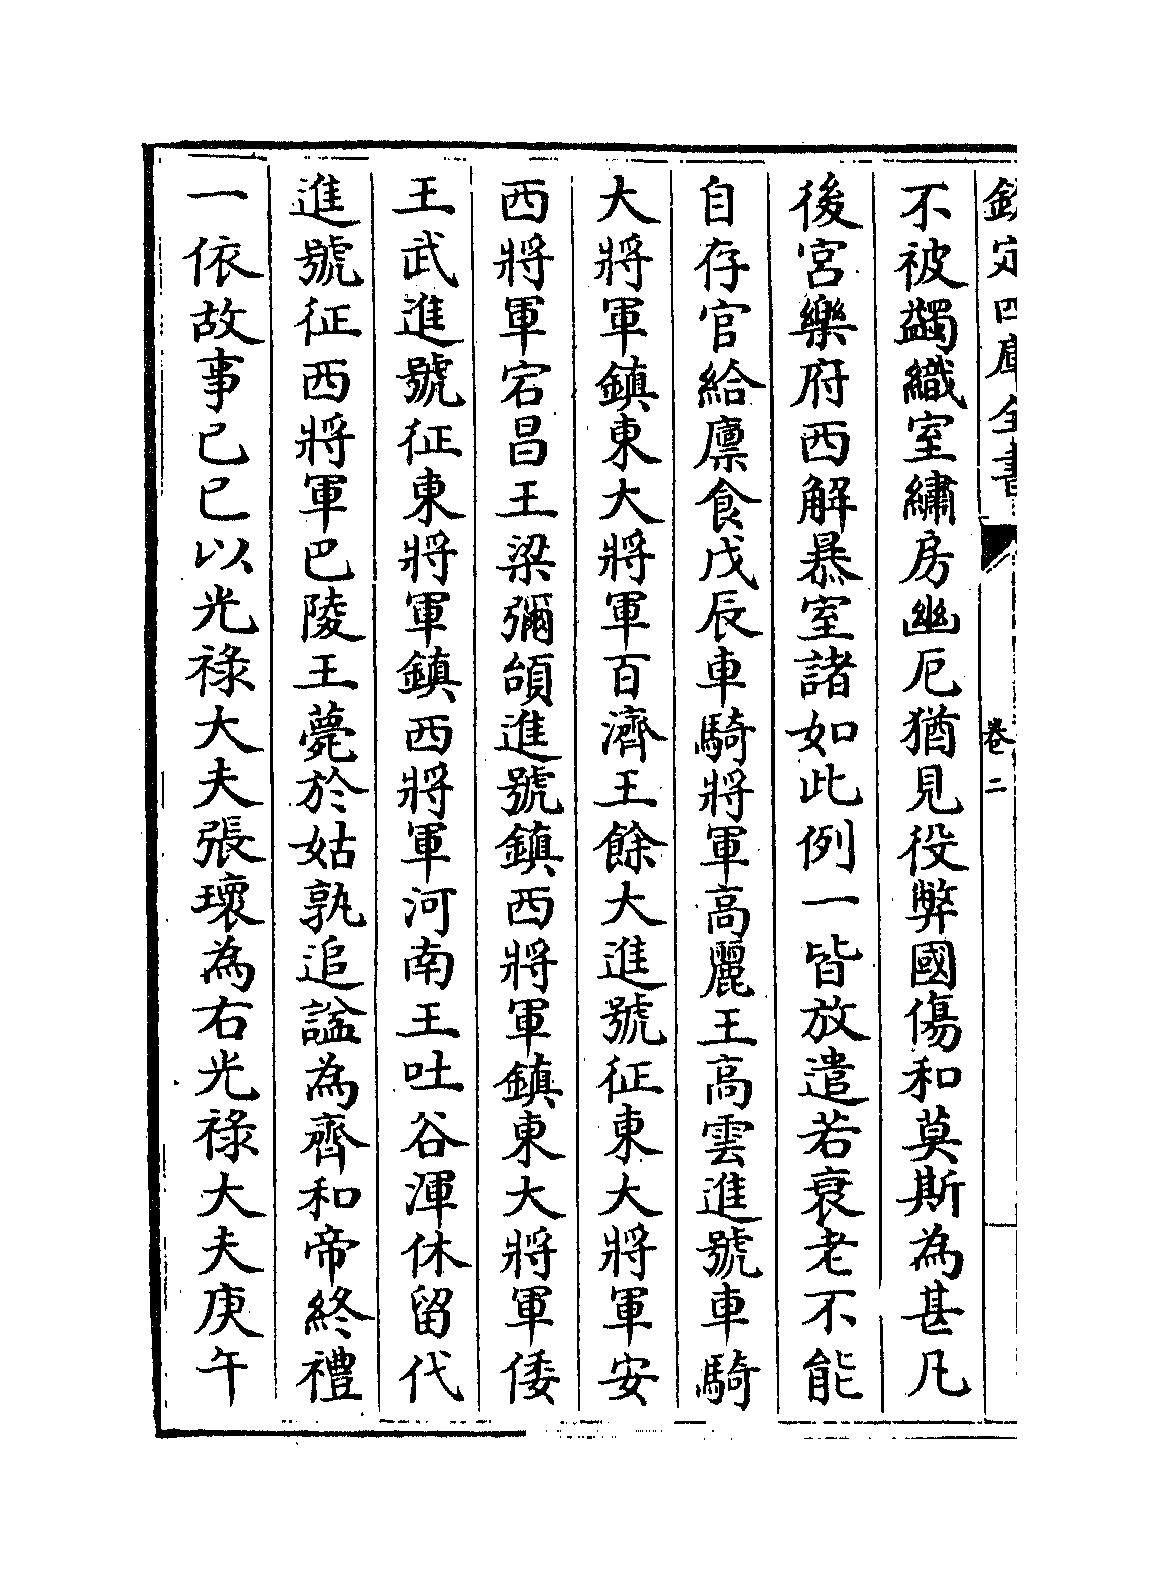 欽定四庫全書 卷二
不被蠲織室繡房幽厄猶見役弊國傷和莫斯為甚凡
後宮樂府西解暴室諸如此例一皆放遣若衰老不能
自存官給廩食戊辰車騎將軍高麗王高雲進號車騎
大將軍鎮東大將軍百濟王餘大進號征東大將軍安
西將軍宕昌王梁彌頜進號鎮西將軍鎮東大將軍倭
王武進號征東將軍鎮西將軍河南王吐谷渾休留代
進號征西將軍巴陵王薨於姑孰追謚為齊和帝終禮
一依故事己巳以光祿大夫張瓌為右光祿大夫庚午